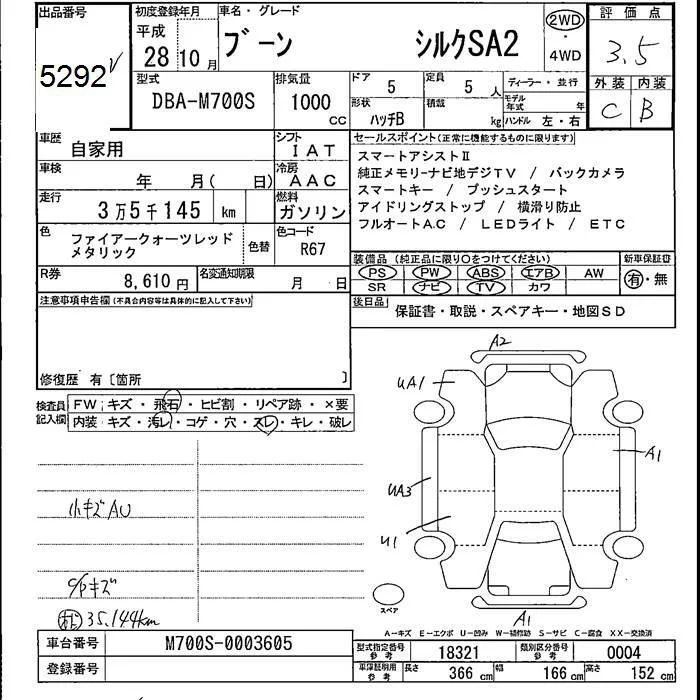 出品番号
5292
初度登録年月
平成
28 10 月
車名・グレード
ブーン シルクSA2
2WD
・
4WD
評価点
3.5
外装 内装
C B
型式
DBA-M700S
排気量
1000
CC
ドア
5
定員
5 人
ディーラー・並行
形状
ハッチB
積載
kg
モデル
年式 年
ハンドル 左・右
車歴
自家用
シフト
IAT
車検
年 月( 日)
冷房
AAC
走行
3万5千145 km
燃料
ガソリン
色
ファイアークォーツレッド
メタリック
色替
色コード
R67
R券
8,610円
名変通知期限
月 日
セールスポイント(正常に機能するものに限ります)
スマートアシストⅡ
純正メモリーナビ地デジTV / バックカメラ
スマートキー / プッシュスタート
アイドリングストップ / 横滑り防止
フルオートA.C / LEDライト / ETC
装備品(純正品に限り○をつけてください)
新車保証書
PS PW ABS エアB AW
SR ナビ TV カワ
有・無
後日品
保証書・取説・スペアキー・地図SD
注意事項申告欄(不具合内容等は具体的に記入して下さい)
修復歴 有〔箇所 〕
検査員
記入欄
FW キズ・飛石・ヒビ割・リペア跡・×要
内装 キズ・汚レ・コゲ・穴・スレ・キレ・破レ
小キズAU
C/Pキズ
35.144km
A2
UA1
A1
UA3
U1
A1
スペア
A-キズ E-エクボ U-凹み W-補修跡 S-サビ C-腐食 XX-交換済
車台番号
M700S-0003605
登録番号
型式指定番号
参考
18321
類別区分番号
参考
0004
車庫証明用
参考
長さ 366 cm 幅 166 cm 高さ 152 cm